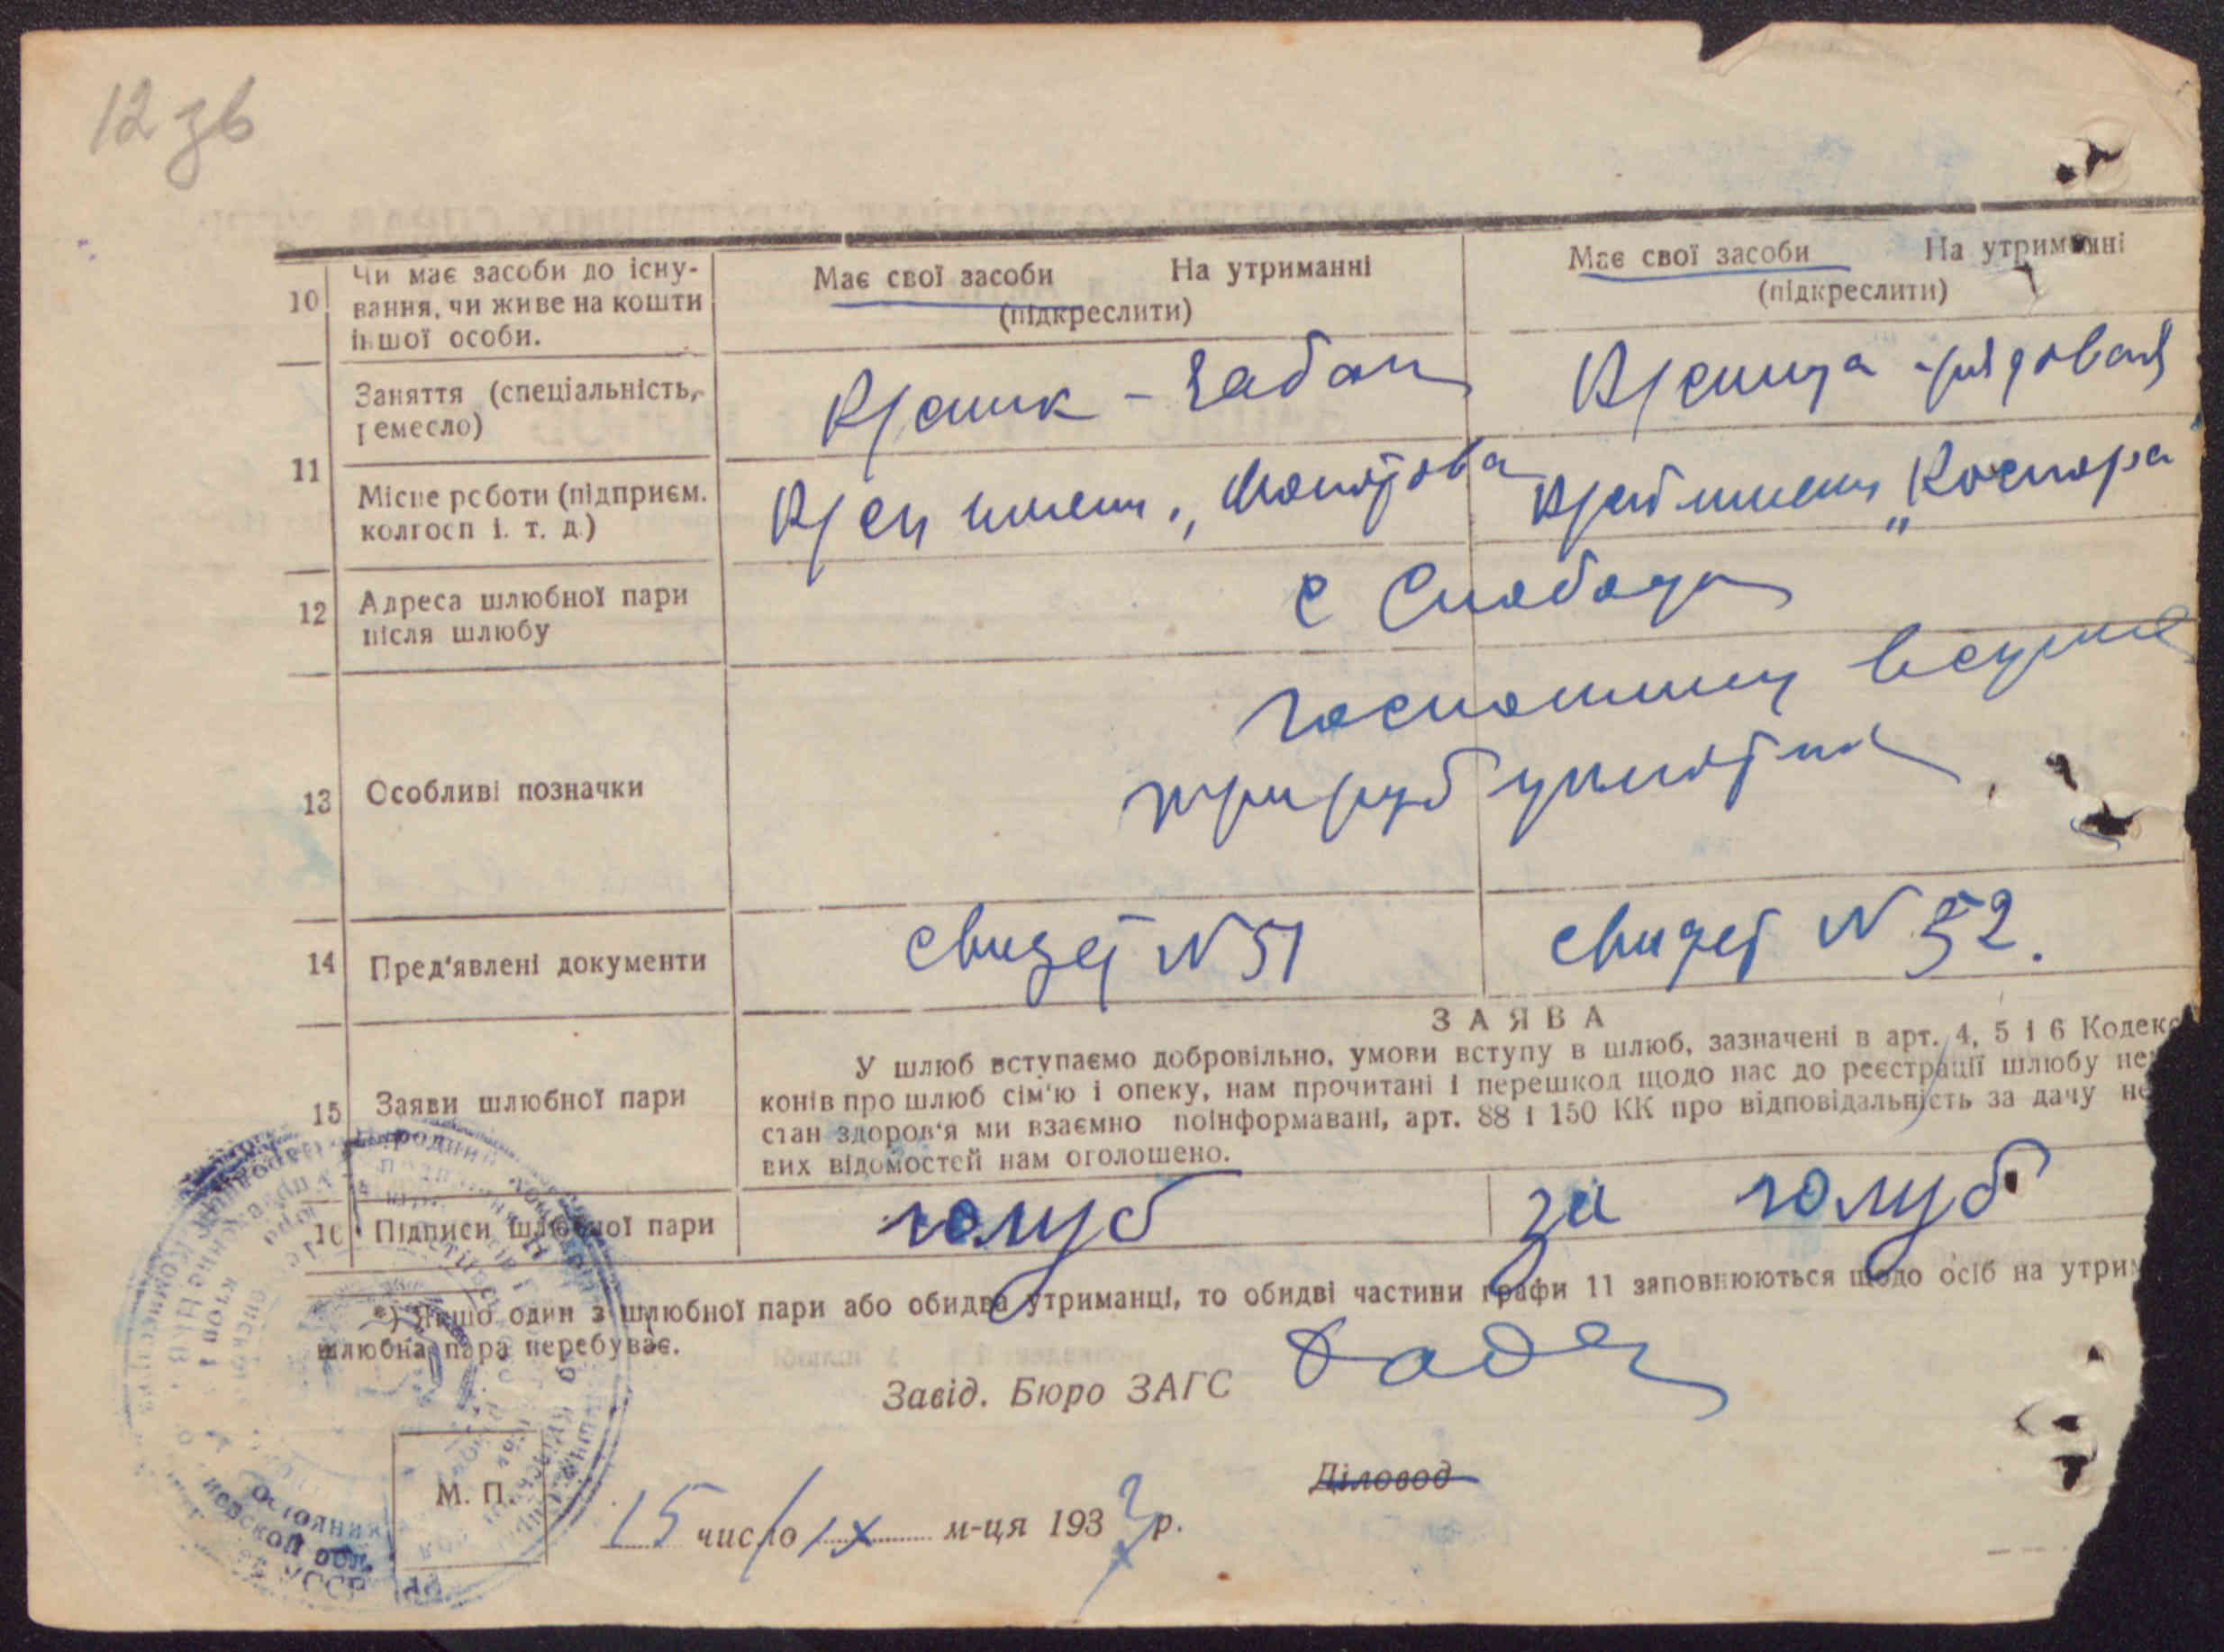 12 зв
10 Чи має засоби до існу-
вання, чи живе на кошти
іншої особи.
Має свої засоби На утриманні
(підкреслити)
Має свої засоби На утриманні
(підкреслити)
11
Заняття (спеціальність,
ремесло)
К/сник -
К/сница - рядовая
Місце роботи (підприєм.
колгосп і. т. д.)
К/сп имени „
имени „
12 Адреса шлюбної пари
після шлюбу
с Слобода
13 Особливі позначки
госпошлину
три руб
14 Пред'явлені документи
свидет N 51
свидет N 52.
15 Заяви шлюбної пари
ЗАЯВА
У шлюб вступаємо добровільно, умови вступу в шлюб, зазначені в арт. 4, 5 і 6 Кодекс
конів про шлюб сім'ю і опеку, нам прочитані і перешкод щодо нас до реєстрації шлюбу нем
стан здоров'я ми взаємно поінформавані, арт. 88 і 150 КК про відповідальність за дачу не
вих відомостей нам оголошено.
16 Підписи шлюбної пари
голуб
за голуб
*) Якщо один з шлюбної пари або обидва утриманці, то обидві частини графи 11 заповнюються щодо осіб на утрим
шлюбна пара перебуває.
Завід. Бюро ЗАГС
Діловод
М. П.
15 число IX м-ця 193 р.